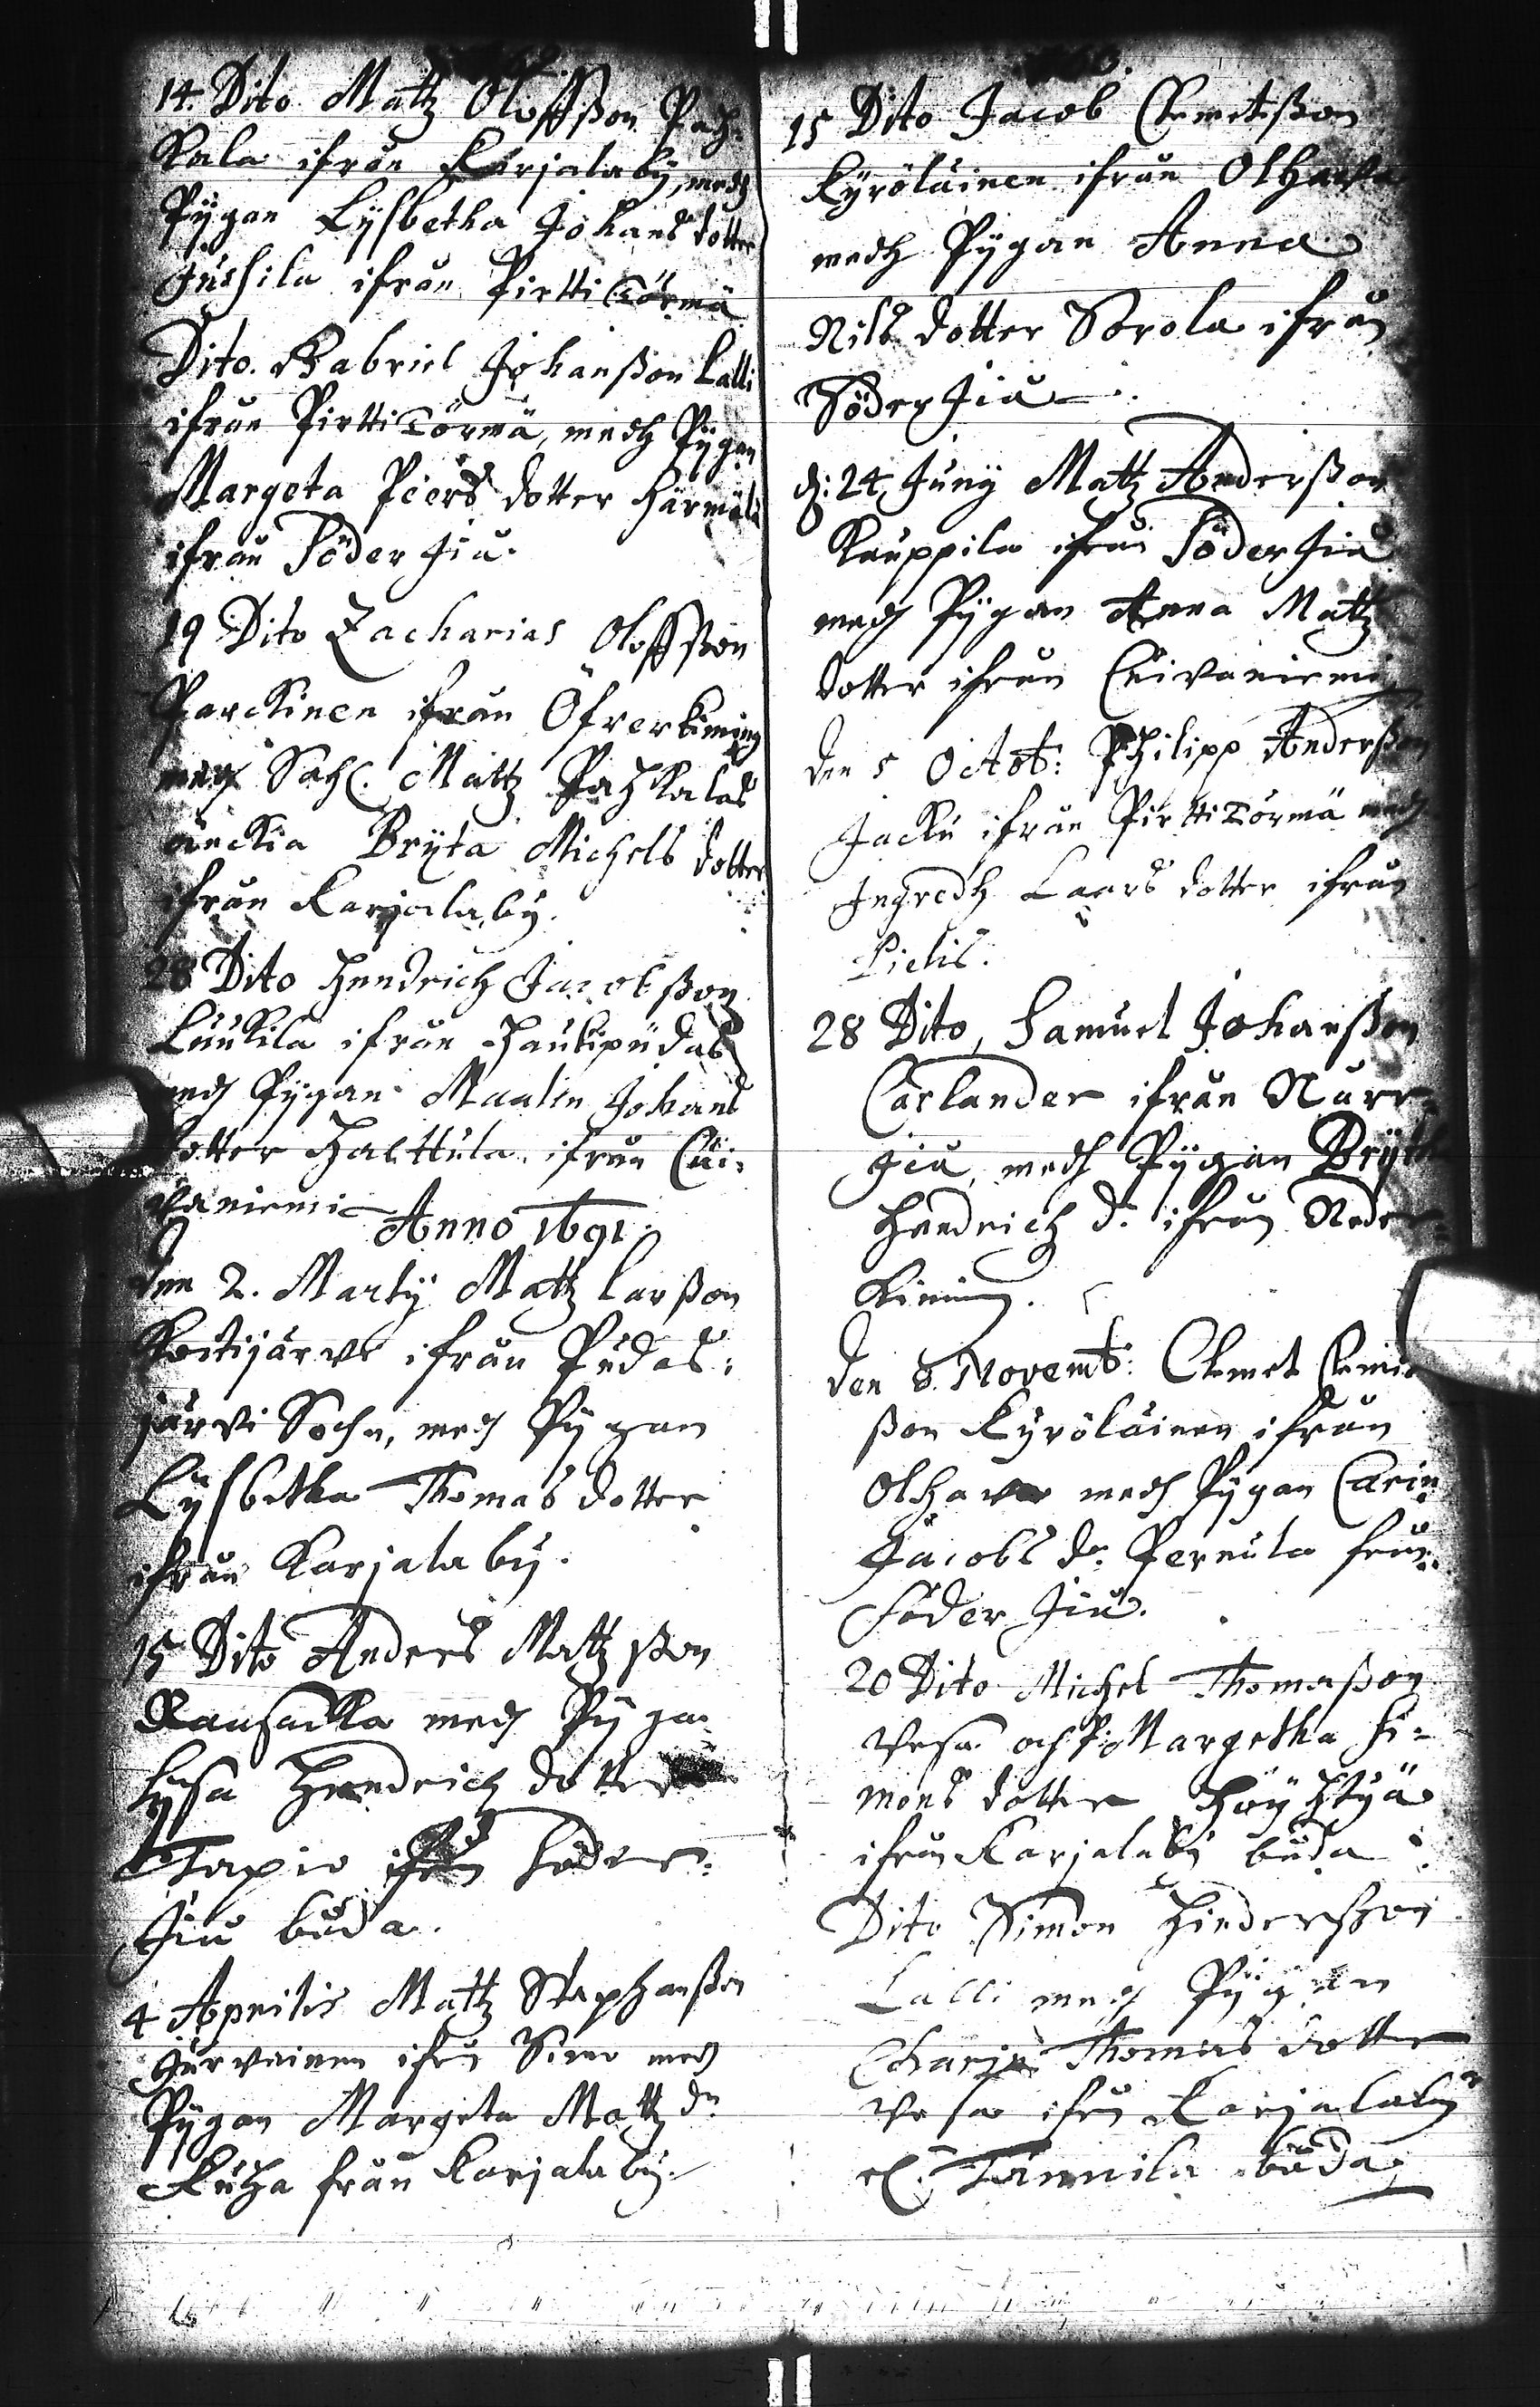 14. Dito Mattz Oloffßon Pah-
kala ifrån Karjalaby, medh
Pÿgan Lÿsbetha Johans dotter
Jussila ifrån Pirttitörmä
Dito. Gabriel Johanßon Lalli
ifrån Pirttitörmä, medh Pÿgan
Margeta Pers dotter Härmälä
ifrån Söder Jiå.
19 Dito Zacharias Oloffßon
Parckinen ifrån Öfverkiming
medh Sahl. Mattz Pahkalas
änckia Brÿta Michels dotter
ifrån Karjalabÿ.
28 Dito Hendrich Jacobßon
Luukila ifrån Haukipudas
medh Pÿgan Maalin Johans
dotter Halttula ifrån Cui-
vaniemi
Anno 1691.
den 2. Martÿ Mattz Larßon
Koitijärvi ifrån Pudas-
järvi Sochn, medh Pÿgan
Lÿsbetha Thomas dotter
ifrån Karjalabÿ.
15 Dito Anders Mattzßon
Rausacka medh Pÿgan
Lÿsa Hendrich dotter
Tapio ifrån Söder-
Jiå båda.
4 Aprilis Mattz Staphanßon
Jurvainen ifrån Simo medh
Pÿgan Margeta Mattz dr
Kuha från Karjalabÿ.
15 Dito Jacob Clemetßon
Kyröläinen ifrån Olhava
medh Pÿgan Anna
Nils dotter Sorola ifrån
Söder Jiå.
d: 24 Junÿ Mattz Anderßon
Kauppila ifrån Söder Jiå
medh Pÿgan Anna Mattz
dotter ifrån Cuivaniemi
den 5 Octob: Philipp Anderßon
Jacku ifrån Pirttitörmä medh
Ingredh Laars dotter ifrån
Pielis.
28 Dito, Samuel Johanßon
Carlander ifrån Nurr-
Jiå, medh Pÿgan Brÿtha
Hendrich d. ifrån Neder-
kiming.
den 8. Novemb: Clemet Clemet
ßon Kyröläinen ifrån
Olhava medh Pÿgan Carin
Jacobs dr. Pernula från
Söder Jiå.
20 Dito Michel Thomaßon
Vesa och P: Margetha Si-
mons dotter Höÿhtyä
ifrån Karjalabÿ båda
Dito Simon Hinderßon
Lalli medh Pÿgan
Charin Thomas dotter
Vesa ifrån Karjalabÿ
Tannila båda